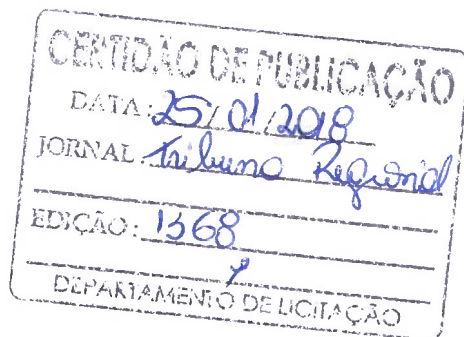 CERTIDÃO DE PUBLICAÇÃO
DATA: 25/01/2018
JORNAL: Tribuna Regional
EDIÇÃO: 1368
DEPARTAMENTO DE LICITAÇÃO